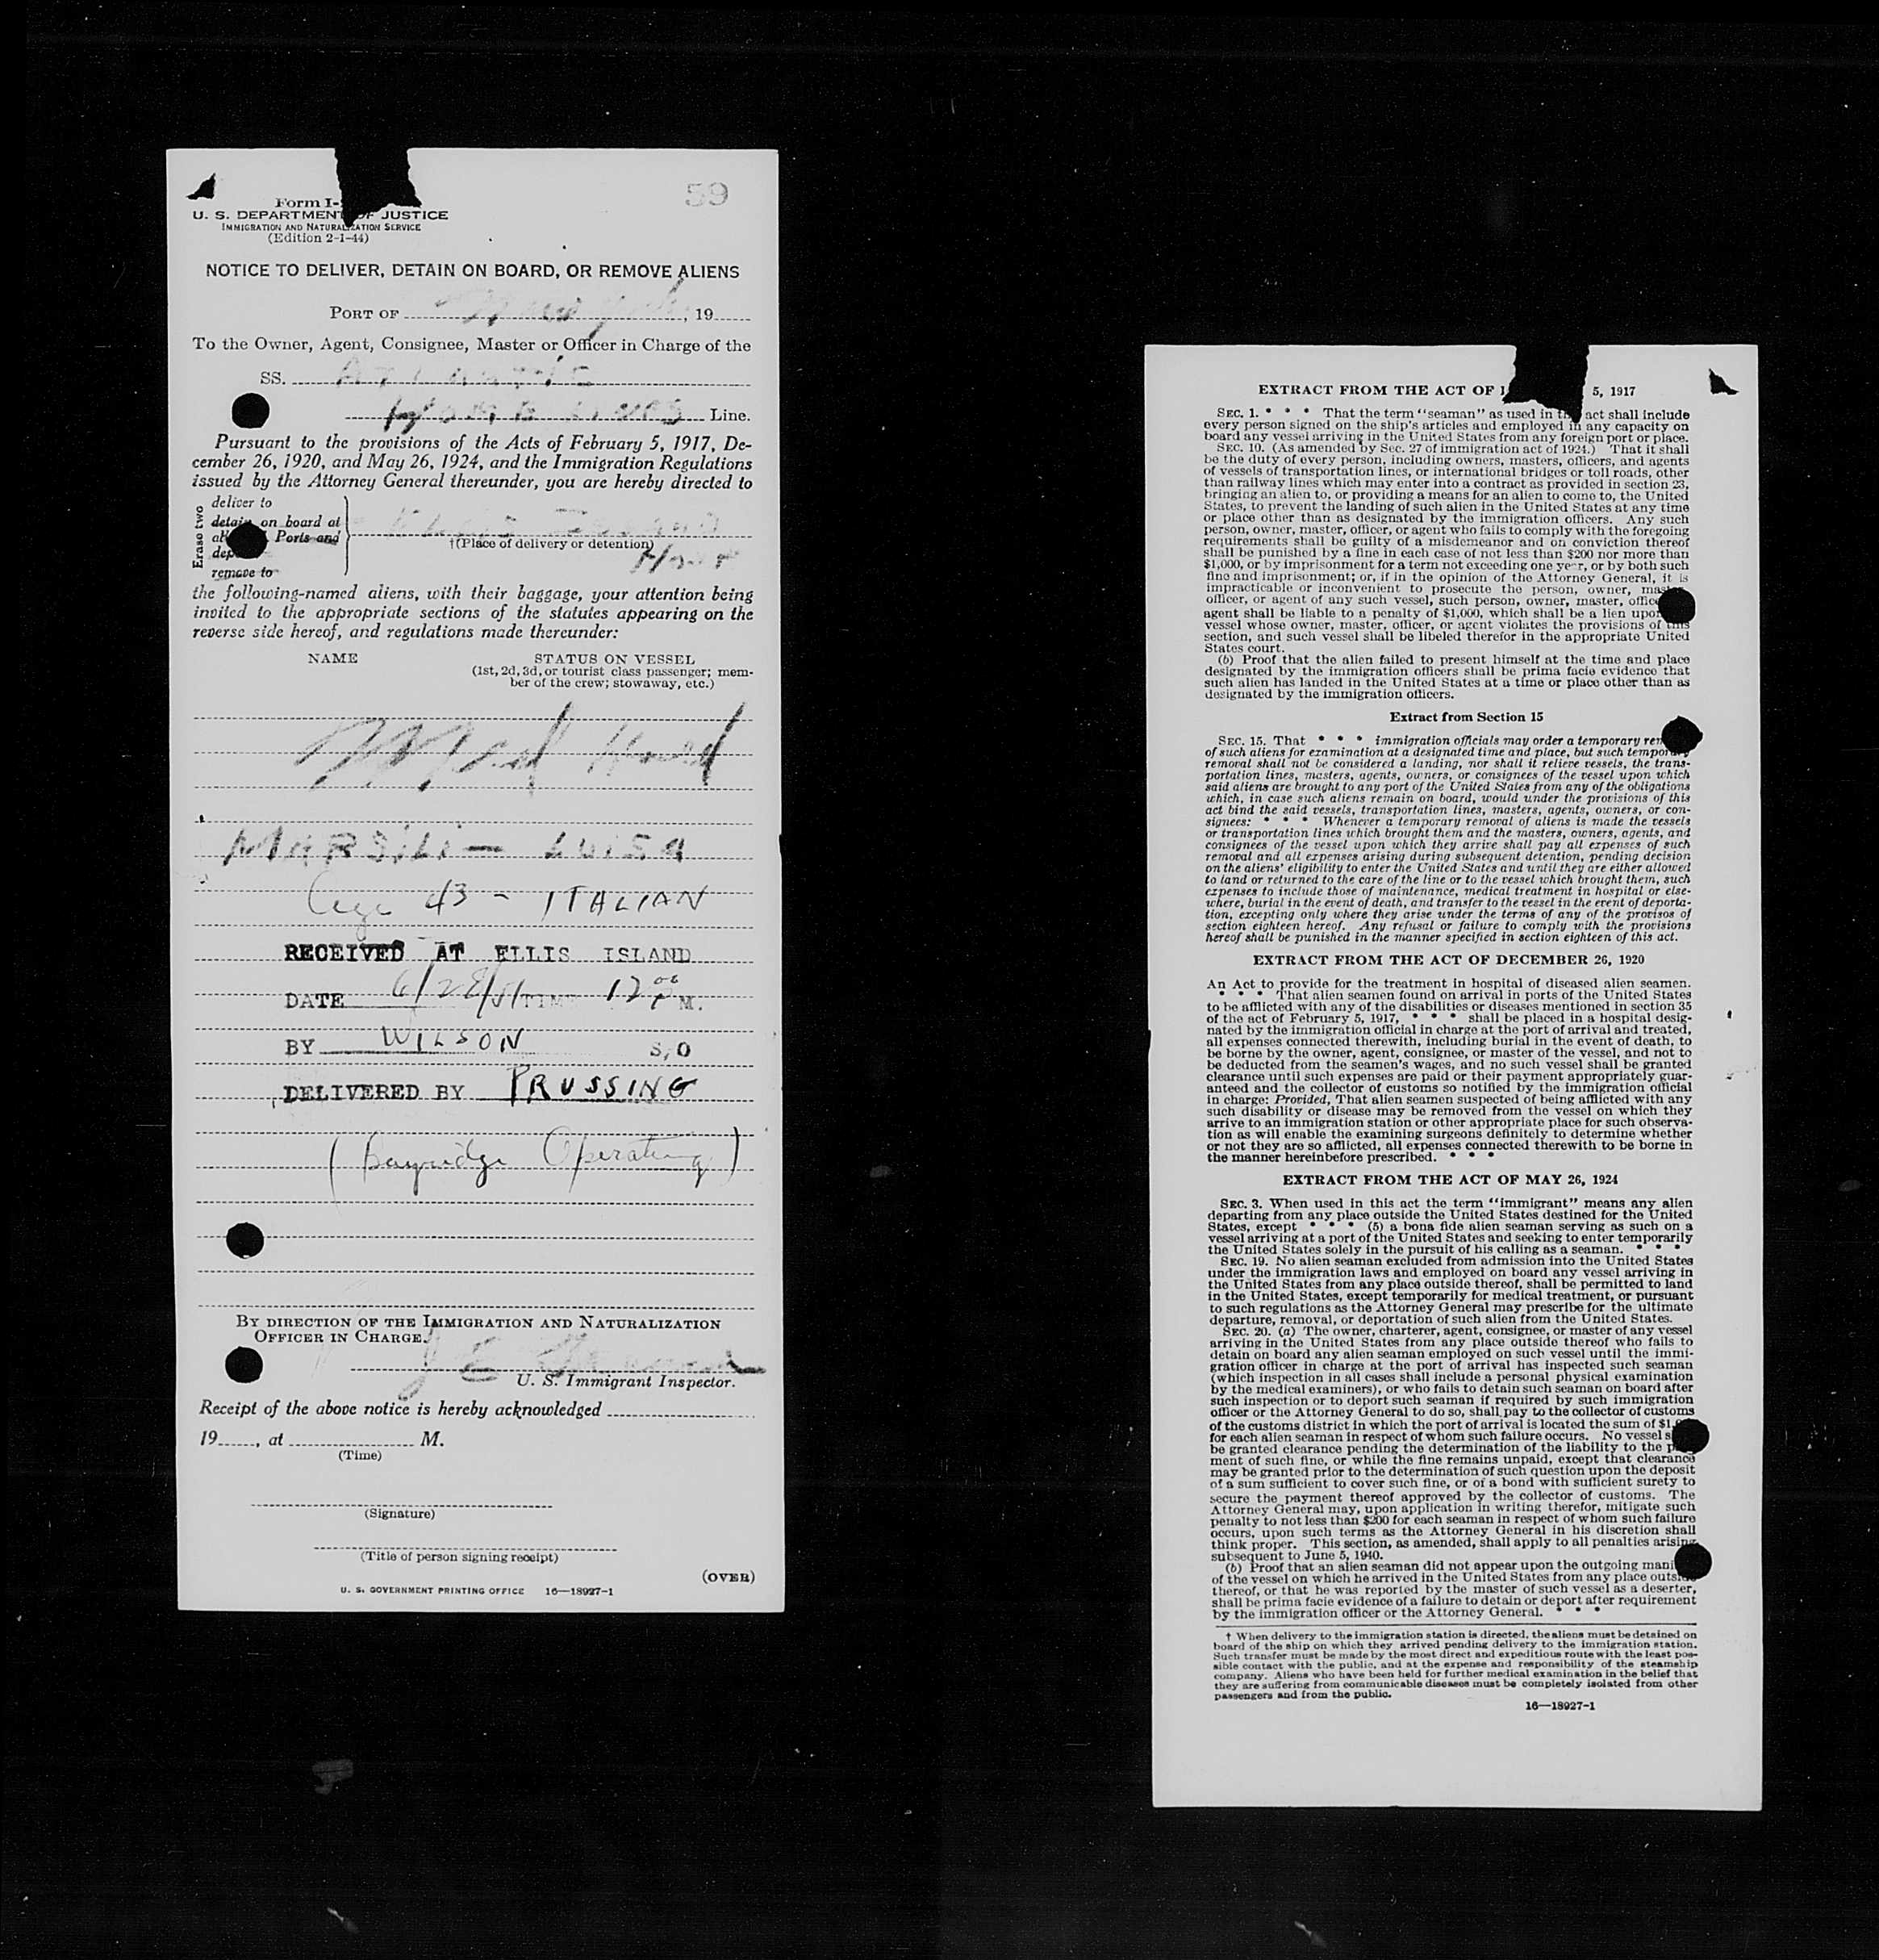 59
Form I-
U. S. DEPARTMENT OF JUSTICE
IMMIGRATION AND NATURALIZATION SERVICE
(Edition 2-1-44)
NOTICE TO DELIVER, DETAIN ON BOARD, OR REMOVE ALIENS
PORT OF New York, 19
To the Owner, Agent, Consignee, Master or Officer in Charge of the
SS. ATLANTIC
HOME LINES Line.
Pursuant to the provisions of the Acts of February 5, 1917, De-
cember 26, 1920, and May 26, 1924, and the Immigration Regulations
issued by the Attorney General thereunder, you are hereby directed to
Erase two
deliver to
detain on board at
Ports and
remove to
Ellis Island
†(Place of delivery or detention)
the following-named aliens, with their baggage, your attention being
invited to the appropriate sections of the statutes appearing on the
reverse side hereof, and regulations made thereunder:
NAME STATUS ON VESSEL
(1st, 2d, 3d, or tourist class passenger; mem-
ber of the crew; stowaway, etc.)
Med Hold
MARSILI — LUISA
Age 43 - ITALIAN
RECEIVED AT ELLIS ISLAND
DATE 6/28/51 TIME 12 00 P M.
BY WILSON S,O
DELIVERED BY PRUSSING
(Bayridge Operating)
BY DIRECTION OF THE IMMIGRATION AND NATURALIZATION
OFFICER IN CHARGE.
U. S. Immigrant Inspector.
Receipt of the above notice is hereby acknowledged
19, at M.
(Time)
(Signature)
(Title of person signing receipt)
(OVER)
U. S. GOVERNMENT PRINTING OFFICE 16—18927-1
EXTRACT FROM THE ACT OF 5, 1917
SEC. 1. * * * That the term "seaman" as used in this act shall include
every person signed on the ship's articles and employed in any capacity on
board any vessel arriving in the United States from any foreign port or place.
SEC. 10. (As amended by Sec. 27 of immigration act of 1924.) That it shall
be the duty of every person, including owners, masters, officers, and agents
of vessels of transportation lines, or international bridges or toll roads, other
than railway lines which may enter into a contract as provided in section 23,
bringing an alien to, or providing a means for an alien to come to, the United
States, to prevent the landing of such alien in the United States at any time
or place other than as designated by the immigration officers. Any such
person, owner, master, officer, or agent who fails to comply with the foregoing
requirements shall be guilty of a misdemeanor and on conviction thereof
shall be punished by a fine in each case of not less than $200 nor more than
$1,000, or by imprisonment for a term not exceeding one year, or by both such
fine and imprisonment; or, if in the opinion of the Attorney General, it is
impracticable or inconvenient to prosecute the person, owner, master,
officer, or agent of any such vessel, such person, owner, master, officer
agent shall be liable to a penalty of $1,000, which shall be a lien upon
vessel whose owner, master, officer, or agent violates the provisions of this
section, and such vessel shall be libeled therefor in the appropriate United
States court.
(b) Proof that the alien failed to present himself at the time and place
designated by the immigration officers shall be prima facie evidence that
such alien has landed in the United States at a time or place other than as
designated by the immigration officers.
Extract from Section 15
SEC. 15. That * * * immigration officials may order a temporary rem
of such aliens for examination at a designated time and place, but such temporary
removal shall not be considered a landing, nor shall it relieve vessels, the trans-
portation lines, masters, agents, owners, or consignees of the vessel upon which
said aliens are brought to any port of the United States from any of the obligations
which, in case such aliens remain on board, would under the provisions of this
act bind the said vessels, transportation lines, masters, agents, owners, or con-
signees: * * * Whenever a temporary removal of aliens is made the vessels
or transportation lines which brought them and the masters, owners, agents, and
consignees of the vessel upon which they arrive shall pay all expenses of such
removal and all expenses arising during subsequent detention, pending decision
on the aliens' eligibility to enter the United States and until they are either allowed
to land or returned to the care of the line or to the vessel which brought them, such
expenses to include those of maintenance, medical treatment in hospital or else-
where, burial in the event of death, and transfer to the vessel in the event of deporta-
tion, excepting only where they arise under the terms of any of the provisos of
section eighteen hereof. Any refusal or failure to comply with the provisions
hereof shall be punished in the manner specified in section eighteen of this act.
EXTRACT FROM THE ACT OF DECEMBER 26, 1920
An Act to provide for the treatment in hospital of diseased alien seamen.
* * * That alien seamen found on arrival in ports of the United States
to be afflicted with any of the disabilities or diseases mentioned in section 35
of the act of February 5, 1917, * * * shall be placed in a hospital desig-
nated by the immigration official in charge at the port of arrival and treated,
all expenses connected therewith, including burial in the event of death, to
be borne by the owner, agent, consignee, or master of the vessel, and not to
be deducted from the seamen's wages, and no such vessel shall be granted
clearance until such expenses are paid or their payment appropriately guar-
anteed and the collector of customs so notified by the immigration official
in charge: Provided, That alien seamen suspected of being afflicted with any
such disability or disease may be removed from the vessel on which they
arrive to an immigration station or other appropriate place for such observa-
tion as will enable the examining surgeons definitely to determine whether
or not they are so afflicted, all expenses connected therewith to be borne in
the manner hereinbefore prescribed. * * *
EXTRACT FROM THE ACT OF MAY 26, 1924
SEC. 3. When used in this act the term "immigrant" means any alien
departing from any place outside the United States destined for the United
States, except * * * (5) a bona fide alien seaman serving as such on a
vessel arriving at a port of the United States and seeking to enter temporarily
the United States solely in the pursuit of his calling as a seaman. * * *
SEC. 19. No alien seaman excluded from admission into the United States
under the immigration laws and employed on board any vessel arriving in
the United States from any place outside thereof, shall be permitted to land
in the United States, except temporarily for medical treatment, or pursuant
to such regulations as the Attorney General may prescribe for the ultimate
departure, removal, or deportation of such alien from the United States.
SEC. 20. (a) The owner, charterer, agent, consignee, or master of any vessel
arriving in the United States from any place outside thereof who fails to
detain on board any alien seaman employed on such vessel until the immi-
gration officer in charge at the port of arrival has inspected such seaman
(which inspection in all cases shall include a personal physical examination
by the medical examiners), or who fails to detain such seaman on board after
such inspection or to deport such seaman if required by such immigration
officer or the Attorney General to do so, shall pay to the collector of customs
of the customs district in which the port of arrival is located the sum of $1,
for each alien seaman in respect of whom such failure occurs. No vessel s
be granted clearance pending the determination of the liability to the pay-
ment of such fine, or while the fine remains unpaid, except that clearance
may be granted prior to the determination of such question upon the deposit
of a sum sufficient to cover such fine, or of a bond with sufficient surety to
secure the payment thereof approved by the collector of customs. The
Attorney General may, upon application in writing therefor, mitigate such
penalty to not less than $200 for each seaman in respect of whom such failure
occurs, upon such terms as the Attorney General in his discretion shall
think proper. This section, as amended, shall apply to all penalties arising
subsequent to June 5, 1940.
(b) Proof that an alien seaman did not appear upon the outgoing mani
of the vessel on which he arrived in the United States from any place outside
thereof, or that he was reported by the master of such vessel as a deserter,
shall be prima facie evidence of a failure to detain or deport after requirement
by the immigration officer or the Attorney General. * * *
† When delivery to the immigration station is directed, the aliens must be detained on
board of the ship on which they arrived pending delivery to the immigration station.
Such transfer must be made by the most direct and expeditious route with the least pos-
sible contact with the public, and at the expense and responsibility of the steamship
company. Aliens who have been held for further medical examination in the belief that
they are suffering from communicable diseases must be completely isolated from other
passengers and from the public.
16—18927-1